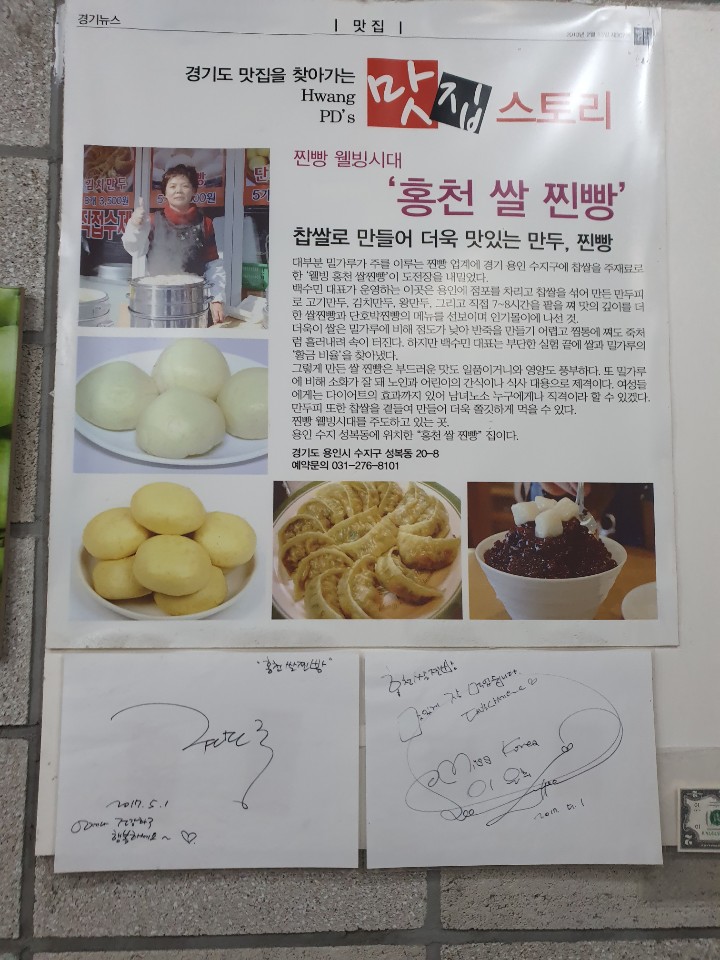 경기뉴스
| 맛집 |
경기도 맛집을 찾아가는
Hwang
PD's
맛집 스토리
찐빵 웰빙시대
'홍천 쌀 찐빵'
찹쌀로 만들어 더욱 맛있는 만두, 찐빵
대부분 밀가루가 주를 이루는 찐빵 업계에 경기 용인 수지구에 찹쌀을 주재료로
한 '웰빙 홍천 쌀찐빵'이 도전장을 내밀었다.
백수민 대표가 운영하는 이곳은 용인에 점포를 차리고 찹쌀을 섞어 만든 만두피
로 고기만두, 김치만두, 왕만두, 그리고 직접 7~8시간을 팥을 쪄 맛의 깊이를 더
한 쌀찐빵과 단호박찐빵의 메뉴를 선보이며 인기몰이에 나선 것.
더욱이 쌀은 밀가루에 비해 점도가 낮아 반죽을 만들기 어렵고 찜통에 쪄도 죽처
럼 흘러내려 속이 터진다. 하지만 백수민 대표는 부단한 실험 끝에 쌀과 밀가루의
'황금 비율'을 찾아냈다.
그렇게 만든 쌀 찐빵은 부드러운 맛도 일품이거니와 영양도 풍부하다. 또 밀가루
에 비해 소화가 잘 돼 노인과 어린이의 간식이나 식사 대용으로 제격이다. 여성들
에게는 다이어트의 효과까지 있어 남녀노소 누구에게나 직격이라 할 수 있겠다.
만두피 또한 찹쌀을 곁들여 만들어 더욱 쫄깃하게 먹을 수 있다.
찐빵 웰빙시대를 주도하고 있는 곳.
용인 수지 성복동에 위치한 "홍천 쌀 찐빵" 집이다.
경기도 용인시 수지구 성복동 20-8
예약문의 031-276-8101
김치만두
3,500원
"홍천 쌀찐빵"
2017.5.1
언제나 건강하고
행복하세요~ ♡
홍천 쌀찐빵
Miss Korea
2017. 5. 1
2